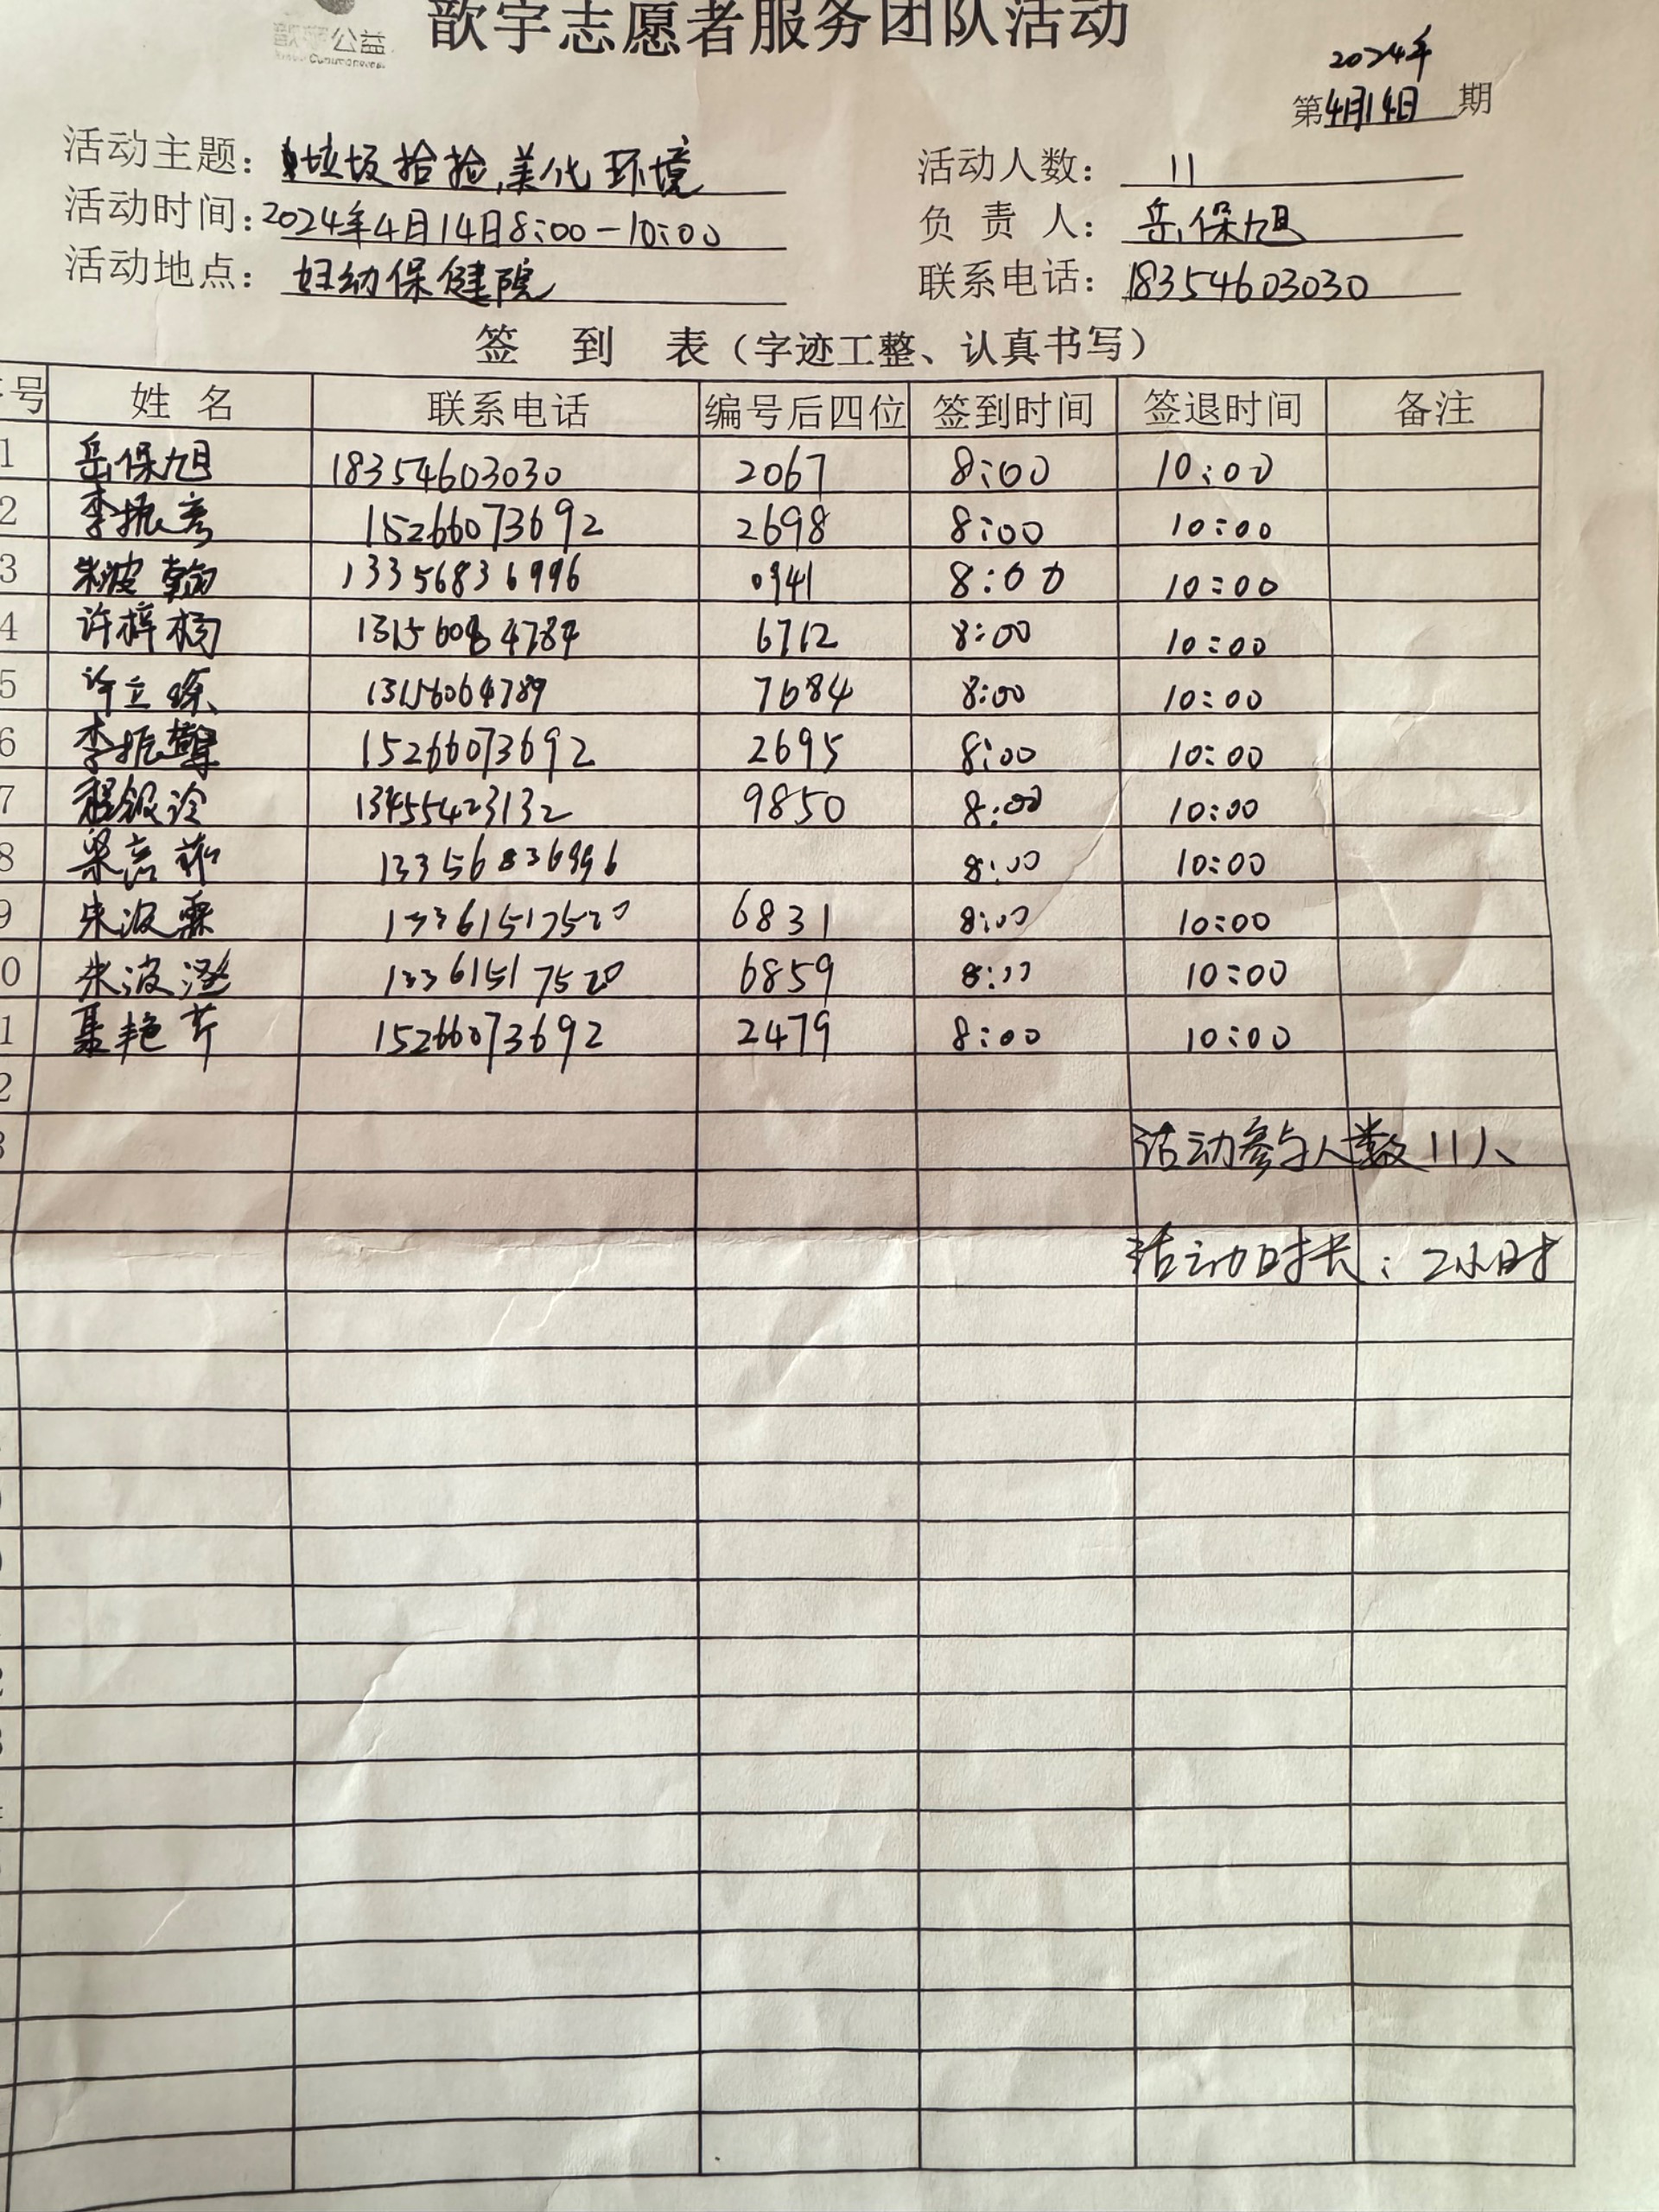 歆宇公益
歆宇志愿者服务团队活动
2024年
第4月14日期
活动主题：垃圾拾捡,美化环境 活动人数：11
活动时间：2024年4月14日8:00-10:00 负责人：岳保旭
活动地点：妇幼保健院 联系电话：18354603030
签到表（字迹工整、认真书写）
号 姓名 联系电话 编号后四位 签到时间 签退时间 备注
1 岳保旭 18354603030 2067 8:00 10:00
2 李振彦 15266073692 2698 8:00 10:00
3 朱波翰 13356836996 0941 8:00 10:00
4 许梓杨 6712 8:00 10:00
5 许立 13156064789 7684 8:00 10:00
6 李振 15266073692 2695 8:00 10:00
7 程银泠 13455423132 9850 8:00 10:00
8 梁 13356836996 8:00 10:00
9 朱波霖 13361517520 6831 8:00 10:00
0 朱波 13361517520 6859 8:00 10:00
1 聂艳芹 15266073692 2479 8:00 10:00
2
活动参与人数11人
活动时长：2小时